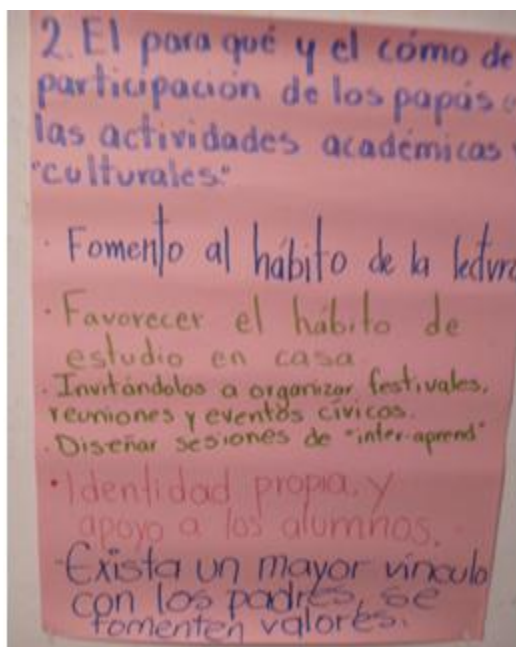 2. El para qué y el cómo de
participación de los papás
las actividades académicas
"culturales."
· Fomento al hábito de la lectura
· Favorecer el hábito de
estudio en casa
· Invitándolos a organizar festivales,
reuniones y eventos cívicos.
· Diseñar sesiones de "inter-aprend"
· Identidad propia, y
apoyo a los alumnos.
· Exista un mayor vínculo
con los padres, se
fomenten valores.